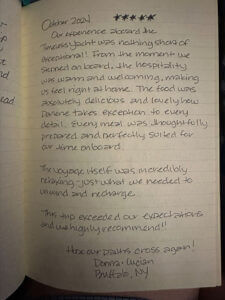 October 2024 ★★★★★
Our experience aboard the
Timeless Yacht was nothing short of
exceptional! From the moment we
stepped on board, the hospitality
was warm and welcoming, making
us feel right at home. The food was
absolutely delicious and loved how
Darlene takes exception to every
detail. Every meal was thoughtfully
prepared and perfectly suited for
our time onboard.
The voyage itself was incredibly
relaxing - just what we needed to
unwind and recharge.
This trip exceeded our expectations
and we highly recommend!!
Hope our paths cross again!
Donna + Lucian
Buffalo, NY